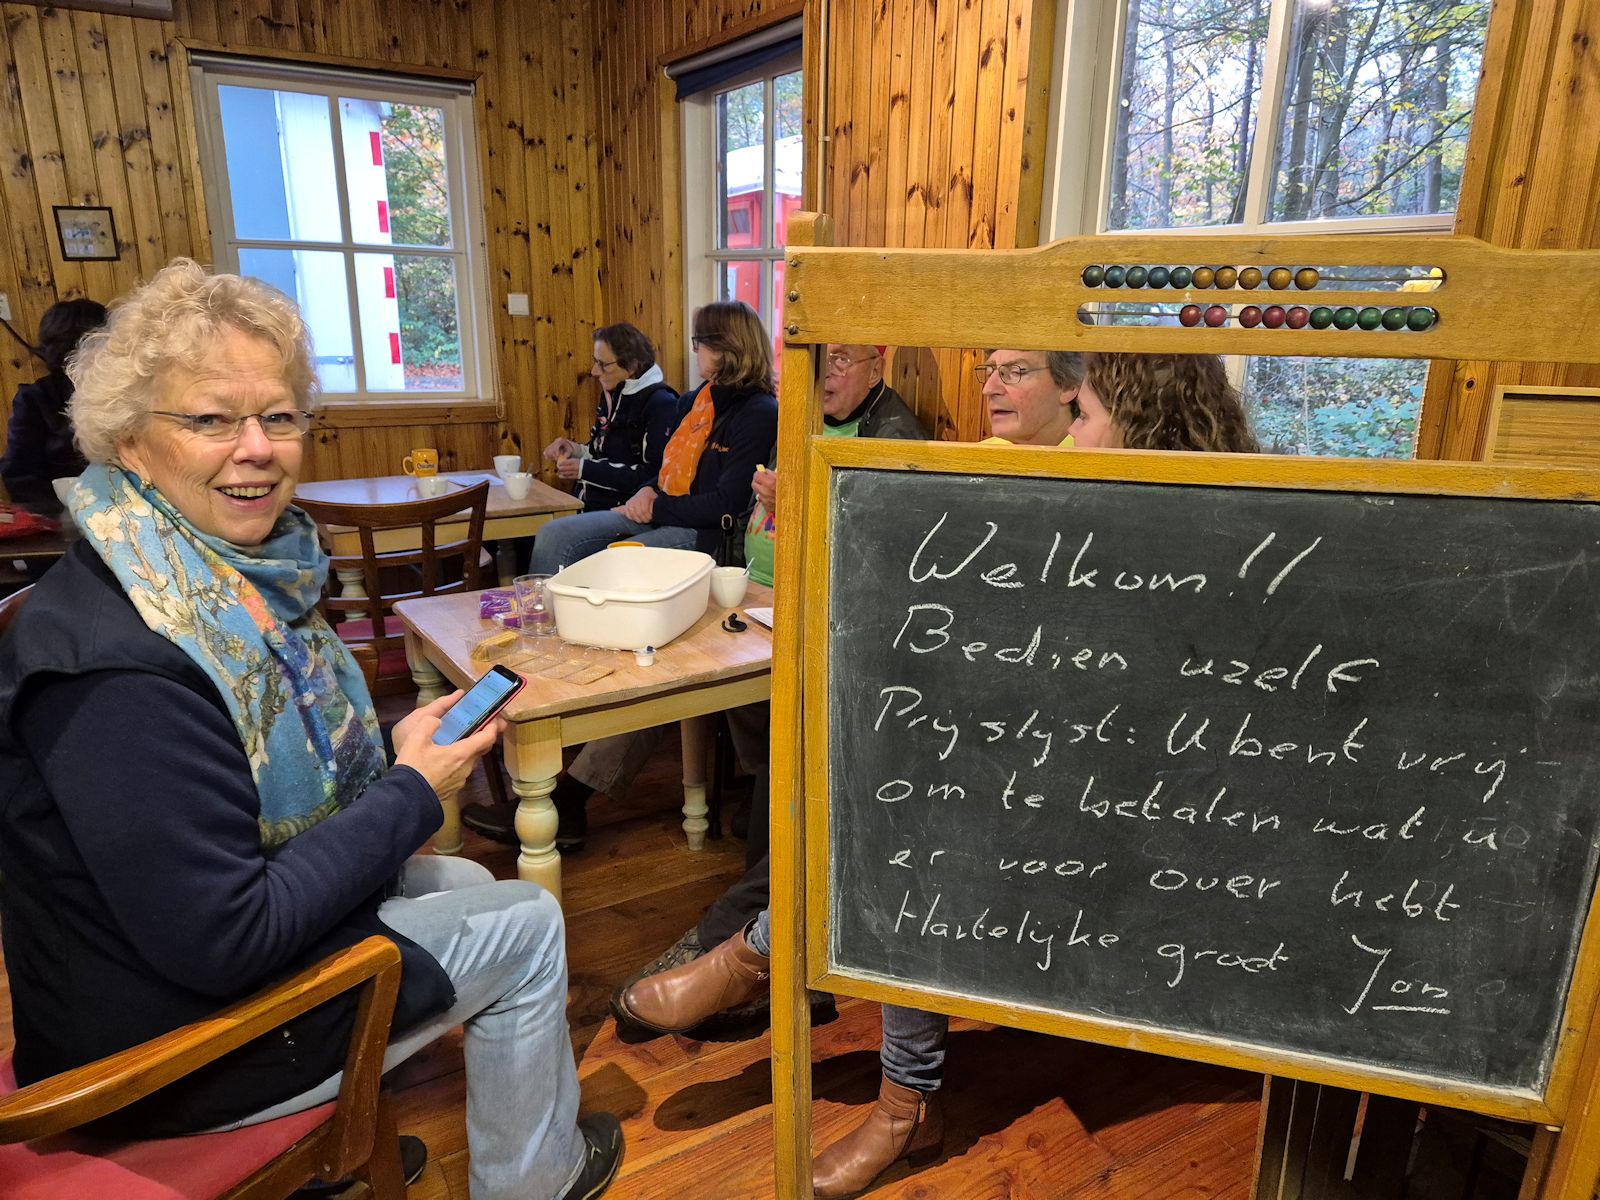 Welkom!!
Bedien uzelf
Prijslijst: U bent vrij
om te betalen wat u
er voor over hebt
Hartelijke groet Jon